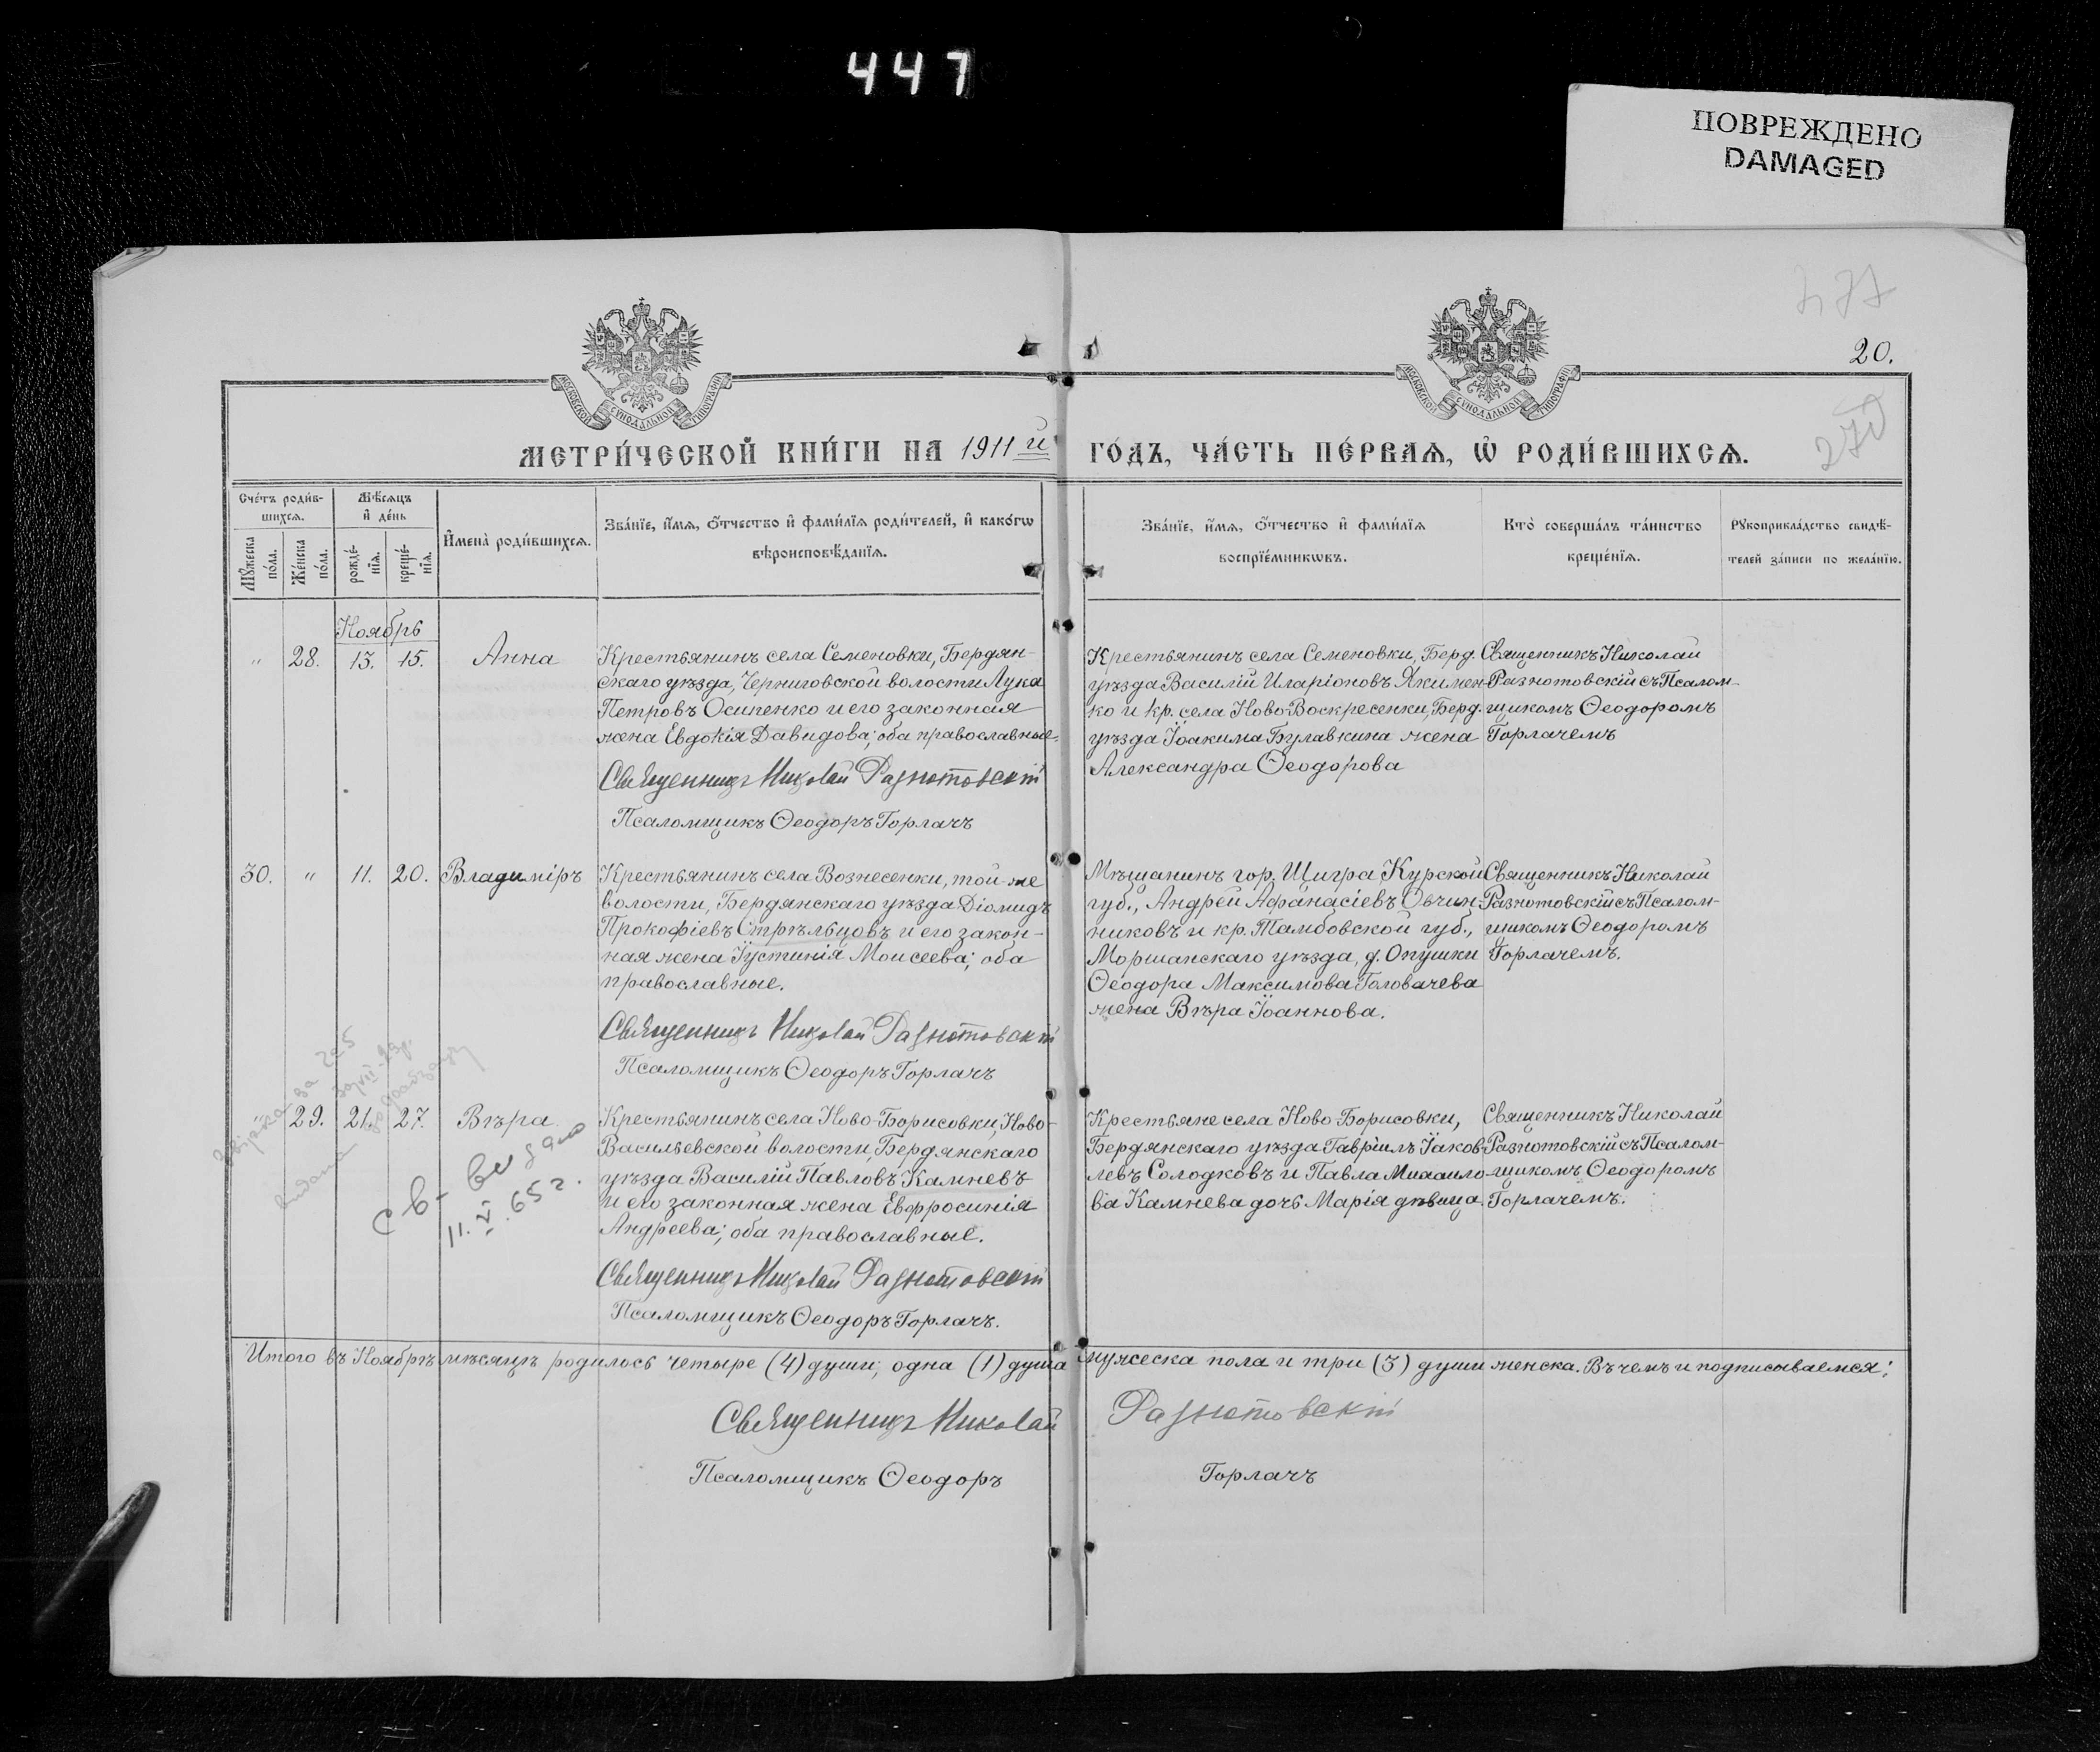 447
ПОВРЕЖДЕНО
DAMAGED
20.
МОСКОВСКОЙ СѴНОДАЛЬНОЙ ТИПОГРАФІИ
МОСКОВСКОЙ СѴНОДАЛЬНОЙ ТИПОГРАФІИ
МЕТРИ́ЧЕСКОЙ КНИ́ГИ НА 1911й ГО́ДЪ, ЧА́СТЬ ПЕ́РВАѦ, Ѡ҆ РОДИ́ВШИХСѦ.
270
Сче́тъ роди́в-
шихсѧ.
Мѣ́сѧцъ
и҆ де́нь
Мꙋ́жеска
по́ла.
Же́нска
по́ла.
рожде́-
нїѧ.
креще́-
нїѧ.
И҆мена̀ роди́вшихсѧ.
Зва́нїе, и҆́мѧ, ѻ҆́тчество и҆ фами́лїѧ роди́телей, и҆ како́гѡ
вѣроисповѣ́данїѧ.
Зва́нїе, и҆́мѧ, ѻ҆́тчество и҆ фами́лїѧ
воспрїе́мникѡвъ.
Кто̀ соверша́лъ та́инство
креще́нїѧ.
Рꙋкоприкла́дство свидѣ́-
телей за́писи по жела́нїю.
Ноябрь
" 28. 13. 15. Анна
Крестьянинъ села Семеновки, Бердян-
скаго уѣзда, Черниговской волости Лука
Петровъ Осипенко и его законная
жена Евдокія Давидова; оба православные.
Священникъ Николай Разнотовскій
Псаломщикъ Ѳеодоръ Горлачъ
Крестьянинъ села Семеновки, Берд.
уѣзда Василій Иларіоновъ Якимен-
ко и кр. села Ново-Воскресенки, Берд.
уѣзда Іоакима Булавкина жена
Александра Ѳеодорова
Священникъ Николай
Разнотовскій съ Псалом-
щикомъ Ѳеодоромъ
Горлачемъ
30. " 11. 20. Владиміръ
Крестьянинъ села Вознесенки, той-же
волости, Бердянскаго уѣзда Діомидъ
Прокофіевъ Стрѣльцовъ и его закон-
ная жена Іустинія Моисеева; оба
православные.
Священникъ Николай Разнотовскій
Псаломщикъ Ѳеодоръ Горлачъ
Мѣщанинъ гор. Щигра Курской
губ., Андрей Афанасіевъ Овчин-
никовъ и кр. Тамбовской губ.,
Моршанскаго уѣзда, д. Опушки
Ѳеодора Максимова Головачева
жена Вѣра Іоаннова.
Священникъ Николай
Разнотовскій съ Псалом-
щикомъ Ѳеодоромъ
Горлачемъ.
29. 21. 27. Вѣра
Крестьянинъ села Ново-Борисовки, Ново-
Васильевской волости, Бердянскаго
уѣзда Василій Павловъ Камневъ
и его законная жена Евфросинія
Андреева; оба православные.
Священникъ Николай Разнотовскій
Псаломщикъ Ѳеодоръ Горлачъ.
Крестьяне села Ново-Борисовки,
Бердянскаго уѣзда Гавріилъ Іаков-
левъ Солодковъ и Павла Михаило-
ва Камнева дочь Марія дѣвица.
Священникъ Николай
Разнотовскій съ Псалом-
щикомъ Ѳеодоромъ
Горлачемъ.
св-во дано
11.VI.65 г.
Итого въ Ноябрѣ мѣсяцѣ родилось четыре (4) души; одна (1) душа мужеска пола и три (3) души женска. Въ чемъ и подписываемся:
Священникъ Николай Разнотовскій
Псаломщикъ Ѳеодоръ Горлачъ